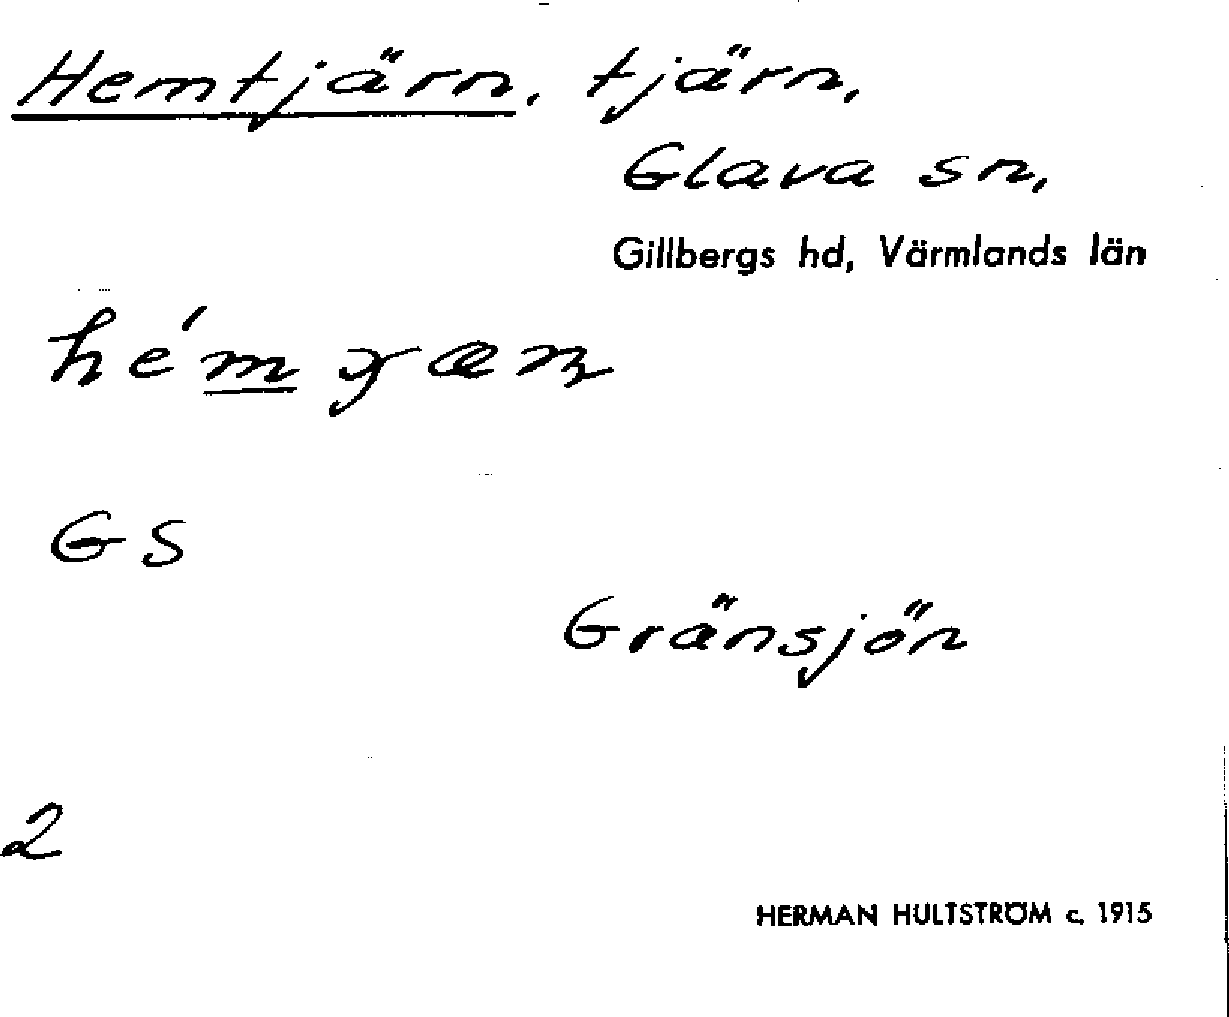 Hemtjärn, tjärn,
Glava sn,
Gillbergs hd, Värmlands län
GS
Gränsjön
2
HERMAN HULTSTRÖM c. 1915